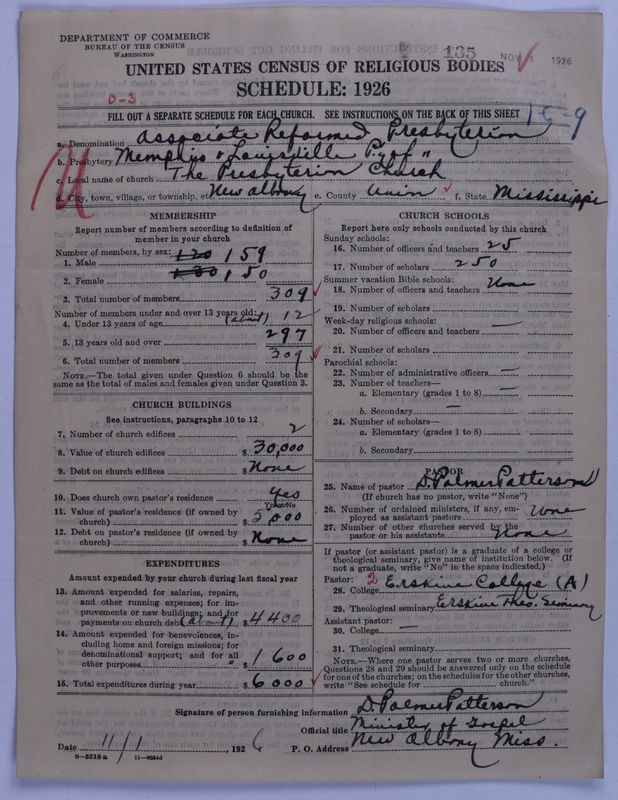 DEPARTMENT OF COMMERCE
BUREAU OF THE CENSUS
WASHINGTON
135 NOV 3 1926
UNITED STATES CENSUS OF RELIGIOUS BODIES
SCHEDULE: 1926
D-3
15-9
FILL OUT A SEPARATE SCHEDULE FOR EACH CHURCH. SEE INSTRUCTIONS ON THE BACK OF THIS SHEET
a. Denomination Associate Reformed Presbyterian
b. Presbytery Memphis & Louisville P. of "
c. Local name of church The Presbyterian Church
d. City, town, village, or township, etc. New Albany e. County Union f. State Mississippi
MEMBERSHIP
Report number of members according to definition of member in your church
Number of members, by sex:
1. Male 120 159
2. Female 150
3. Total number of members 309
Number of members under and over 13 years old:
4. Under 13 years of age (about) 12
5. 13 years old and over 297
6. Total number of members 309
NOTE.—The total given under Question 6 should be the same as the total of males and females given under Question 3.
CHURCH BUILDINGS
See instructions, paragraphs 10 to 12
7. Number of church edifices 2
8. Value of church edifices $ 30,000
9. Debt on church edifices $ None
10. Does church own pastor's residence Yes
Yes or No
11. Value of pastor's residence (if owned by church) $ 5,000
12. Debt on pastor's residence (if owned by church) $ None
EXPENDITURES
Amount expended by your church during last fiscal year
13. Amount expended for salaries, repairs, and other running expenses; for improvements or new buildings; and for payments on church debt (about) $ 4400
14. Amount expended for benevolences, including home and foreign missions; for denominational support; and for all other purposes " $ 1600
15. Total expenditures during year $ 6000
CHURCH SCHOOLS
Report here only schools conducted by this church
Sunday schools:
16. Number of officers and teachers 25
17. Number of scholars 250
Summer vacation Bible schools:
18. Number of officers and teachers None
19. Number of scholars
Week-day religious schools:
20. Number of officers and teachers —
21. Number of scholars
Parochial schools:
22. Number of administrative officers —
23. Number of teachers—
a. Elementary (grades 1 to 8) —
b. Secondary —
24. Number of scholars—
a. Elementary (grades 1 to 8)
b. Secondary
PASTOR
25. Name of pastor D. Palmer Patterson
(If church has no pastor, write "None")
26. Number of ordained ministers, if any, employed as assistant pastors None
27. Number of other churches served by the pastor or his assistants None
If pastor (or assistant pastor) is a graduate of a college or theological seminary, give name of institution below. (If not a graduate, write "No" in the space indicated.)
Pastor: 2
28. College Erskine College (A)
29. Theological seminary Erskine Theo. Seminary
Assistant pastor:
30. College —
31. Theological seminary
NOTE.—Where one pastor serves two or more churches, Questions 28 and 29 should be answered only on the schedule for one of the churches; on the schedules for the other churches, write "See schedule for church."
Signature of person furnishing information D. Palmer Patterson
Official title Minister of Gospel
Date 11/1, 1926 P. O. Address New Albany Miss.
8—5518 a